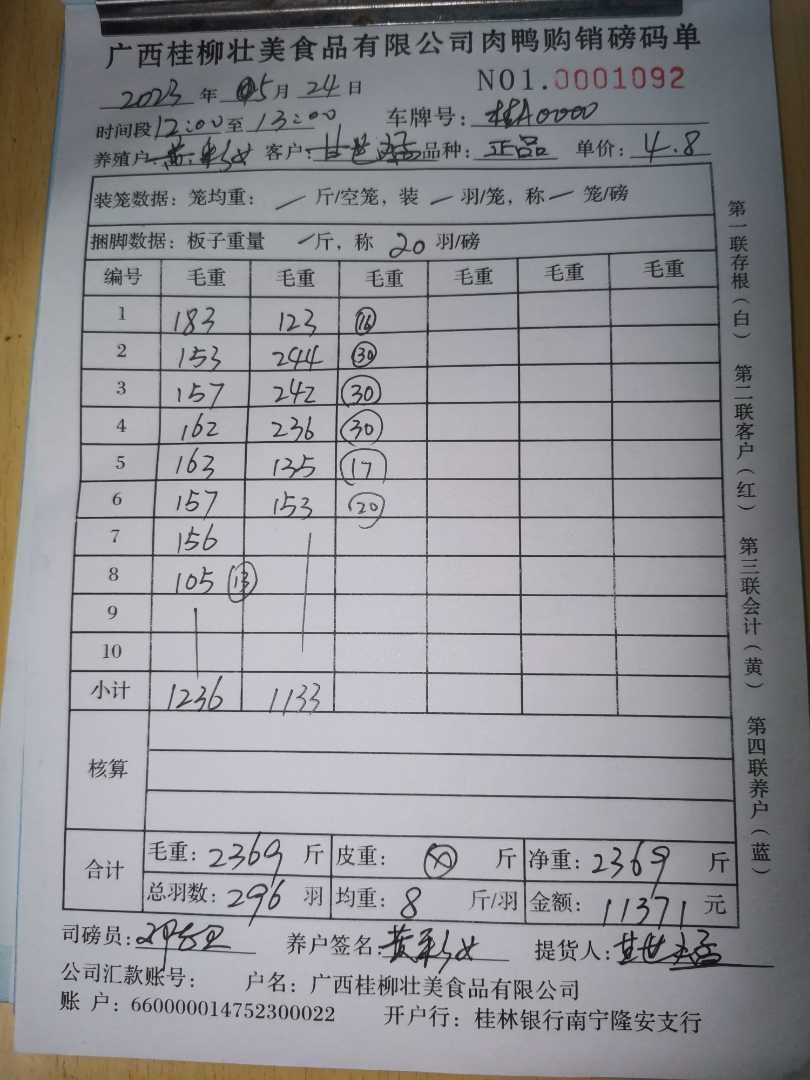 广西桂柳壮美食品有限公司肉鸭购销磅码单
2023 年 05 月 24 日 NO1.0001092
时间段 12:00 至 13:00 车牌号: 桂A0000
养殖户 客户: 甘世 品种: 正品 单价: 4.8
装笼数据: 笼均重: / 斤/空笼, 装 一 羽/笼, 称 一 笼/磅
捆脚数据: 板子重量 / 斤, 称 20 羽/磅
编号 毛重 毛重 毛重 毛重 毛重 毛重
1 183 123 16
2 153 244 30
3 157 242 30
4 162 236 30
5 163 135 17
6 157 153 20
7 156
8 105 13
9
10
小计 1236 1133
核算
合计 毛重: 2369 斤 皮重: 斤 净重: 2369 斤
总羽数: 296 羽 均重: 8 斤/羽 金额: 11371 元
司磅员: 养户签名: 提货人: 甘世
公司汇款账号: 户名: 广西桂柳壮美食品有限公司
账 户: 660000014752300022 开户行: 桂林银行南宁隆安支行
第一联存根(白) 第二联客户(红) 第三联会计(黄) 第四联养户(蓝)